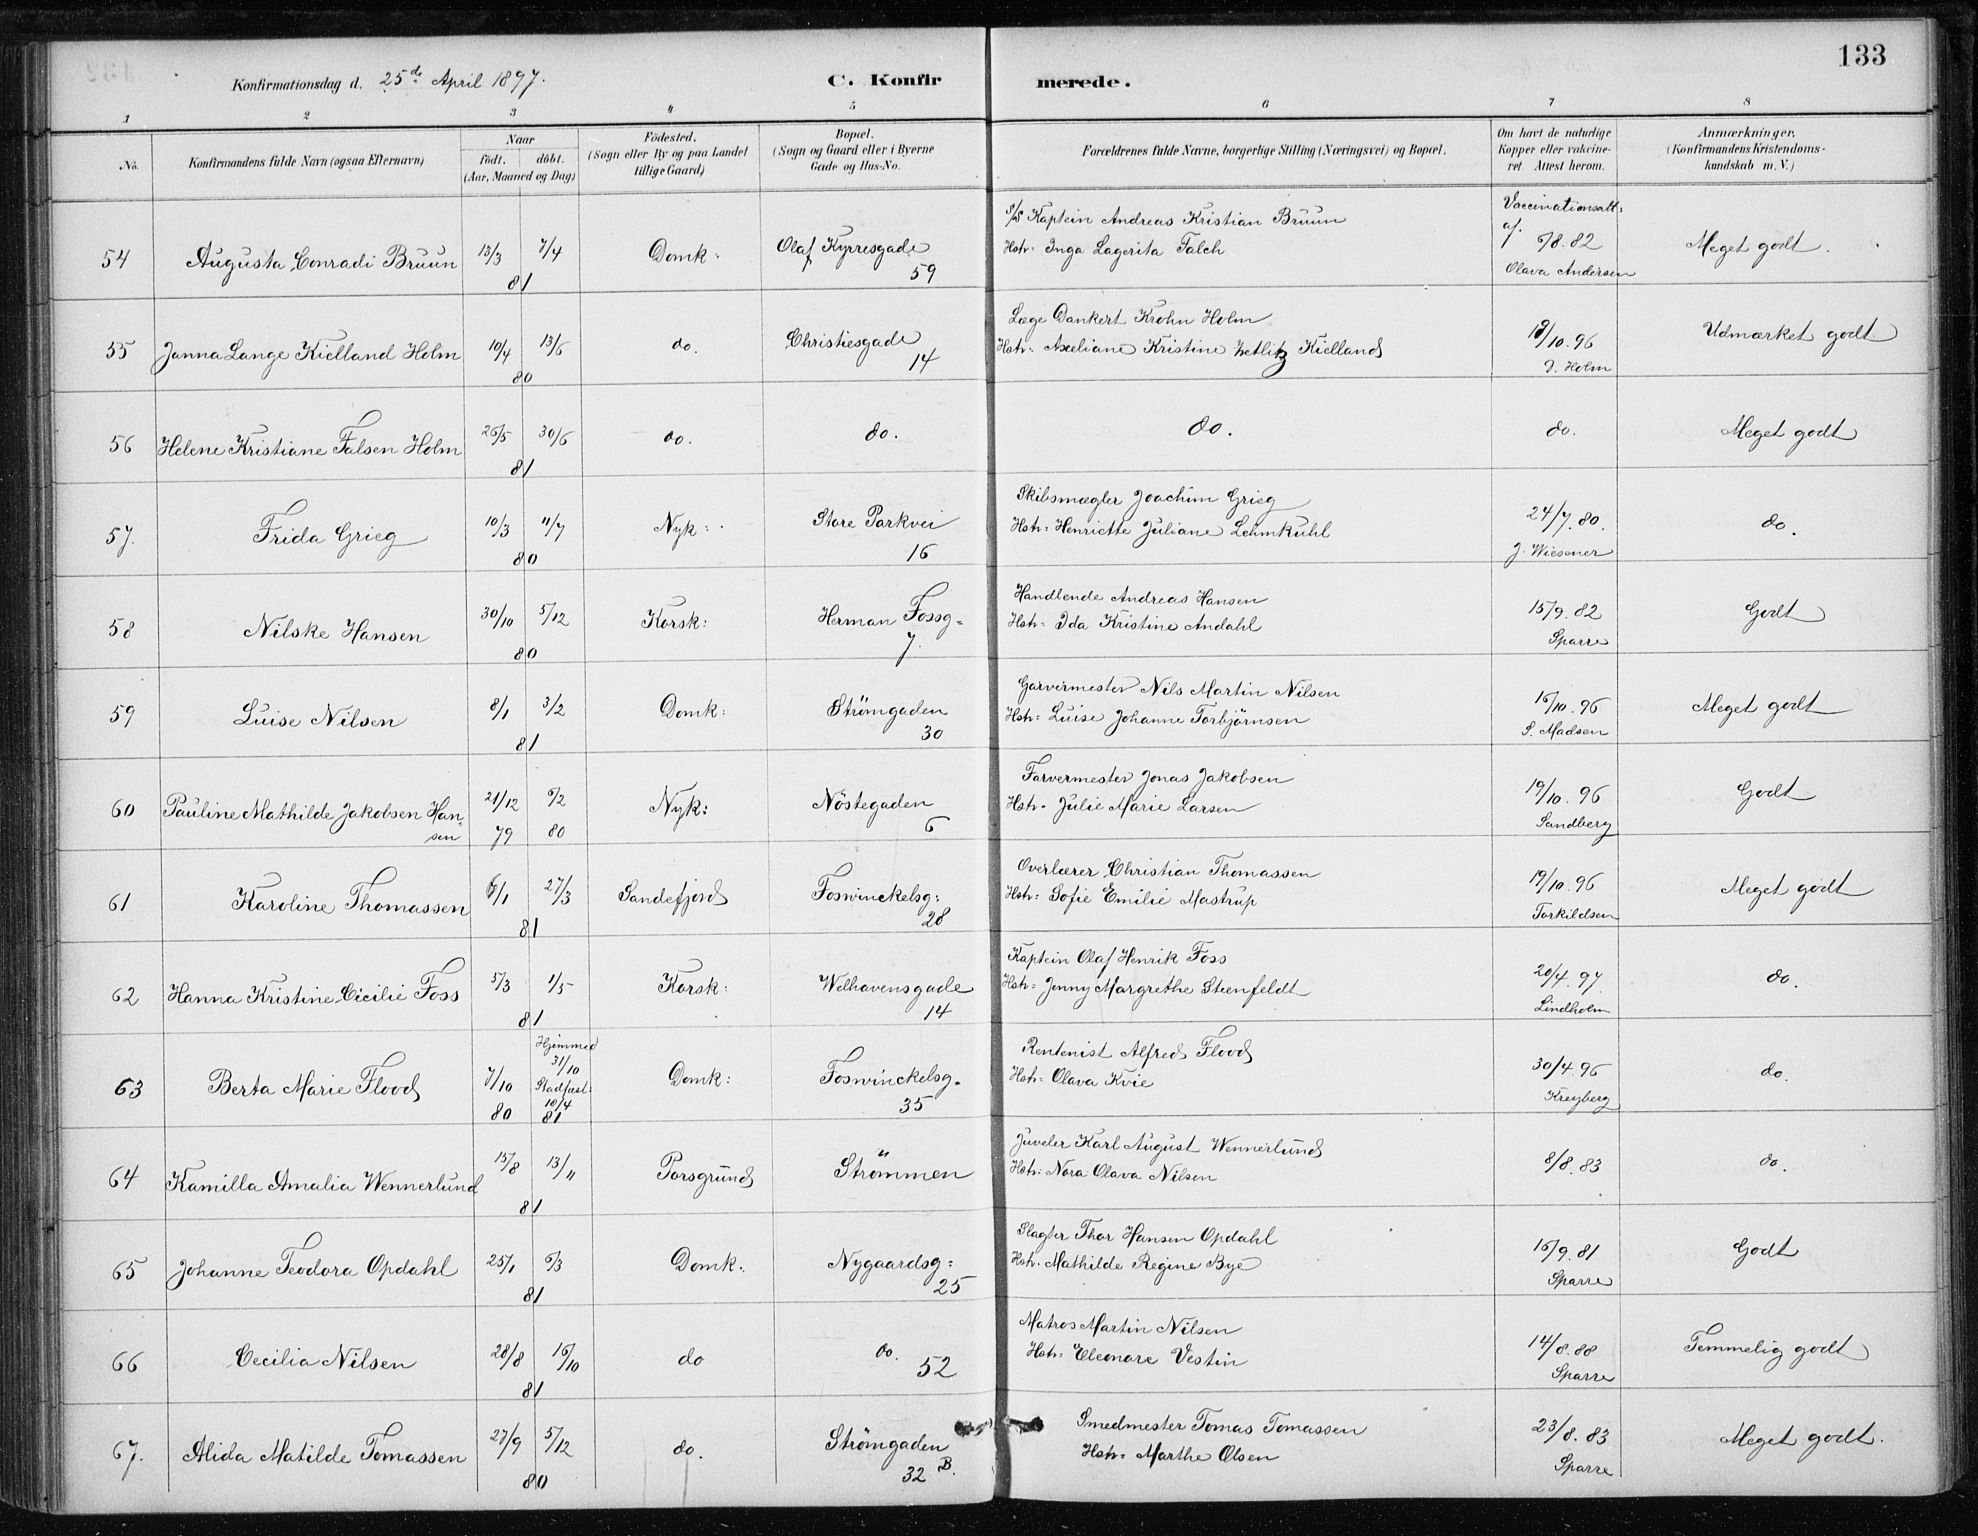 133
Konfirmationsdag d. 25de April 1897.
C. Konfirmerede.
1 2 3 4 5 6 7 8
No.
Konfirmandens fulde Navn (ogsaa Efternavn)
Naar
födt. döbt.
(Aar, Maaned og Dag)
Födested.
(Sogn eller By og paa Landet
tillige Gaard)
Bopæl.
(Sogn og Gaard eller i Byerne
Gade og Hus-No.
Forældrenes fulde Navne, borgerlige Stilling (Næringsvei) og Bopæl.
Om havt de naturlige
Kopper eller vakcine-
ret. Attest herom.
Anmærkninger.
(Konfirmandens Kristendoms-
kundskab m. V.)
54 Augusta Conradi Bruun 13/3 7/4 81 Domk: Olaf Kyrresgade 59
Kaptein Andreas Kristian Bruun
Hstr: Inga Lagerita Falch
Vaccinationsatt: af. 6/8. 82 Olava Andersen
Meget godt.
55 Janna Lange Kielland Holm 10/4 13/6 80 do. Christiesgade 14
Læge Dankert Krohn Holm
Hstr: Axeliane Kristine Zetlitz Kielland
19/10. 96 D. Holm
Udmærket godt
56 Helene Kristiane Falsen Holm 26/5 30/6 81 do. do.
do.
do.
Meget godt
57. Frida Grieg 10/3 11/7 80 Nyk: Store Parkvei 16
Skibsmægler Joachim Grieg
Hstr: Henriette Juliane Lehmkuhl
24/7. 80. J. Wiesener
do.
58 Nilske Hansen 30/10 5/12 80 Korsk: Herman Fossg- 7.
Handlende Andreas Hansen
Hstr: Ida Kristine Andahl
15/9. 82 Sparre
Godt
59 Luise Nilsen 8/1 3/2 81 Domk: Strömgaden 30
Garvermester Nils Martin Nilsen
Hstr: Luise Johanne Torbjörnsen
16/10. 96 S. Madsen
Meget godt
60 Pauline Mathilde Jakobsen Han-
sen 21/12 79 6/2 80 Nyk: Nöstegaden 6
Farvermester Jonas Jakobsen
Hstr. Julie Marie Larsen
19/10. 96 Sandberg
Godt
61 Karoline Thomassen 6/1 27/3 81 Sandefjord Foswinckelsg: 28
Overlærer Christian Thomassen
Hstr: Sofie Emilie Mastrup
19/10. 96 Torkildsen
Meget godt
62 Hanna Kristine Cecilie Foss 5/3 1/5 81 Korsk: Welhavensgade 14
Kaptein Olaf Henrik Foss
Hstr: Jenny Margrethe Steenfeldt
20/4. 97. Lindholm
do.
63 Berta Marie Flood 7/10 80 Hjemmed 31/10 Stadfæst: 18/4 81 Domk: Foswinckelsg. 35
Rentenist Alfred Flood
Hstr: Olava Kvie
30/4. 96 Kreyberg
do.
64 Kamilla Amalia Wennerlund 15/8 13/11 81 Porsgrund Strömmen
Juveler Karl August Wennerlund
Hstr: Nora Olava Nilsen
8/8. 83
do.
65 Johanne Teodora Opdahl 25/1 6/3 81 Domk. Nygaardsg: 25
Slagter Thor Hansen Opdahl
Hstr. Mathilde Regine Bye
16/9. 81 Sparre
Godt
66 Cecilia Nilsen 28/8 16/10 81 do do. 52
Matros Martin Nilsen
Hstr: Eleonore Vestin
14/8. 88 Sparre
Temmelig godt
67. Alida Matilde Tomassen 27/9 5/12 80 do. Strömgaden 32 B.
Smedmester Tomas Tomassen
Hstr: Marthe Olsen
23/8. 83 Sparre
Meget godt.